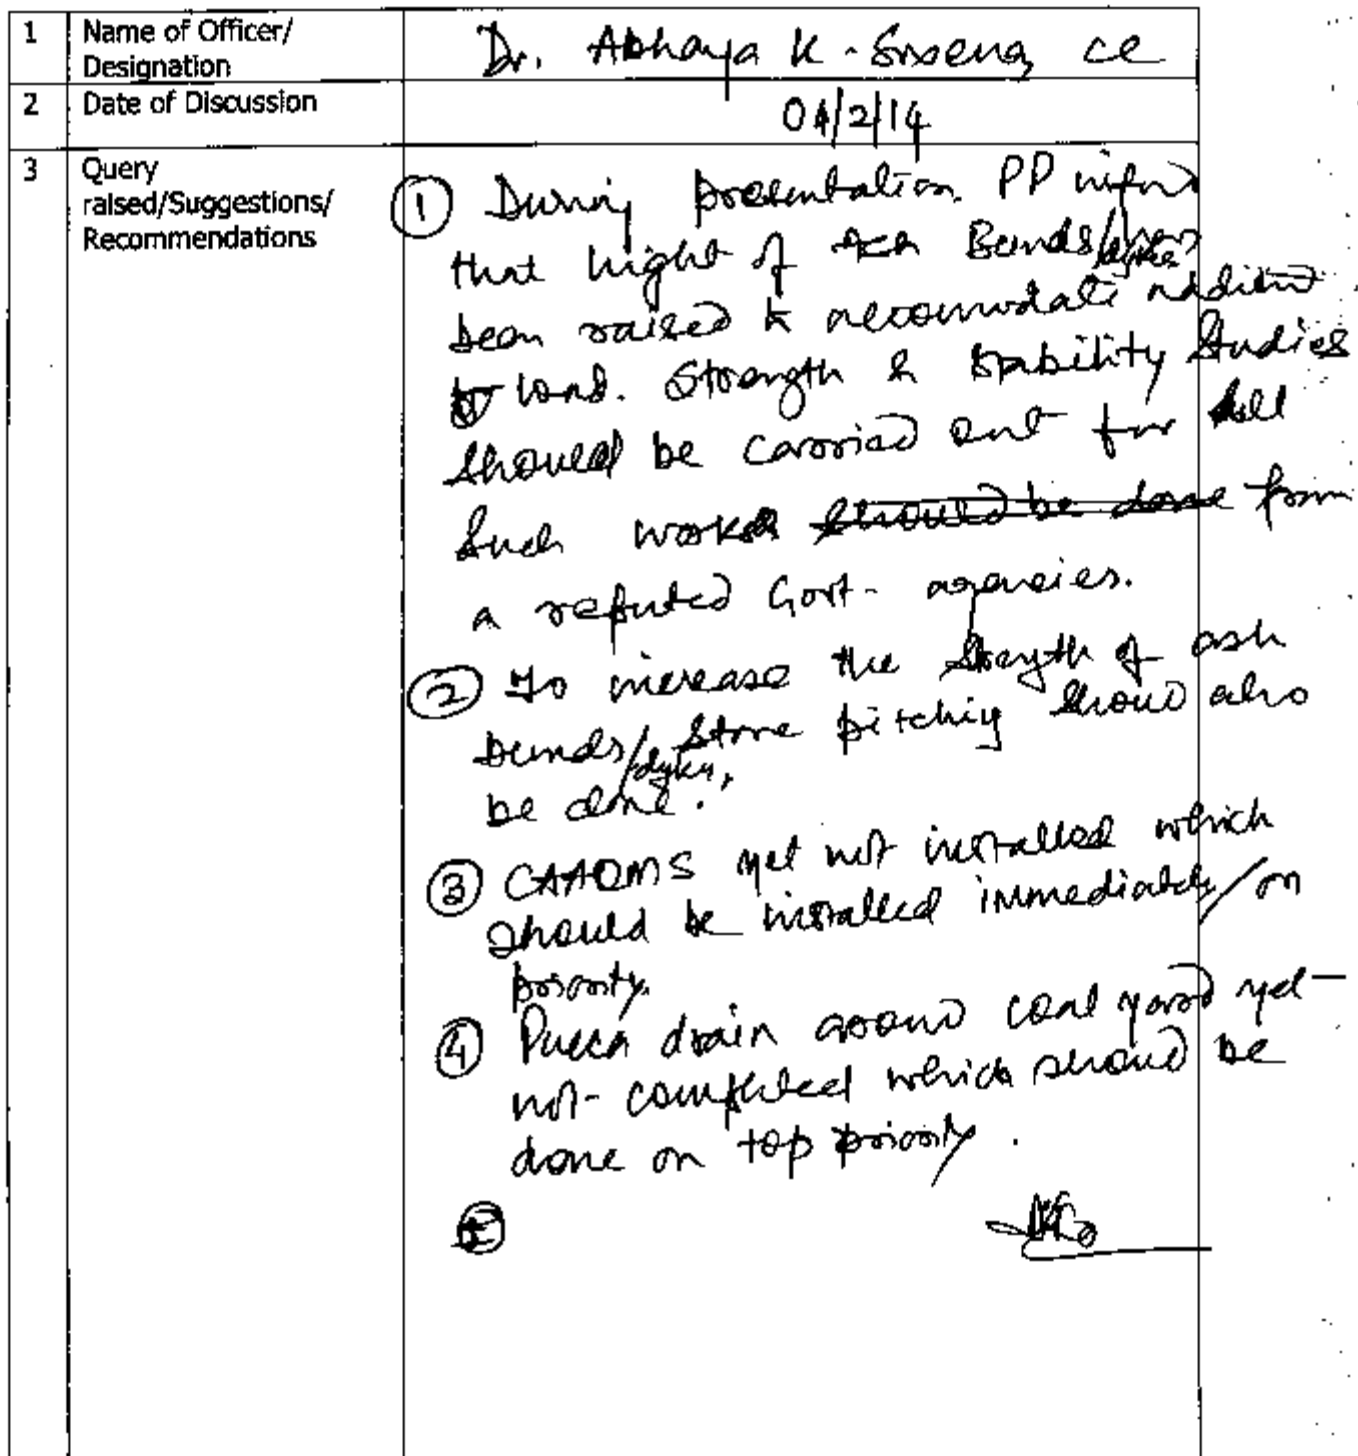 1 Name of Officer/ Designation Dr. Abhaya K. Saxena, CE
2 Date of Discussion 04/2/14
3 Query raised/Suggestions/ Recommendations
① During presentation PP inform
that hight of Ash Bunds/dykes has
been raised to accomodate addition
load. Strength & stability studies
should be carried out for all
such works should be done from
a reputed Govt- agencies.
② To increase the strength of ash
bunds/dykes, stone pitching should also
be done.
③ CAAQMS yet not installed which
should be installed immediately/on
priority.
④ Pucca drain around coal yard yet
not completed which should be
done on top priority.